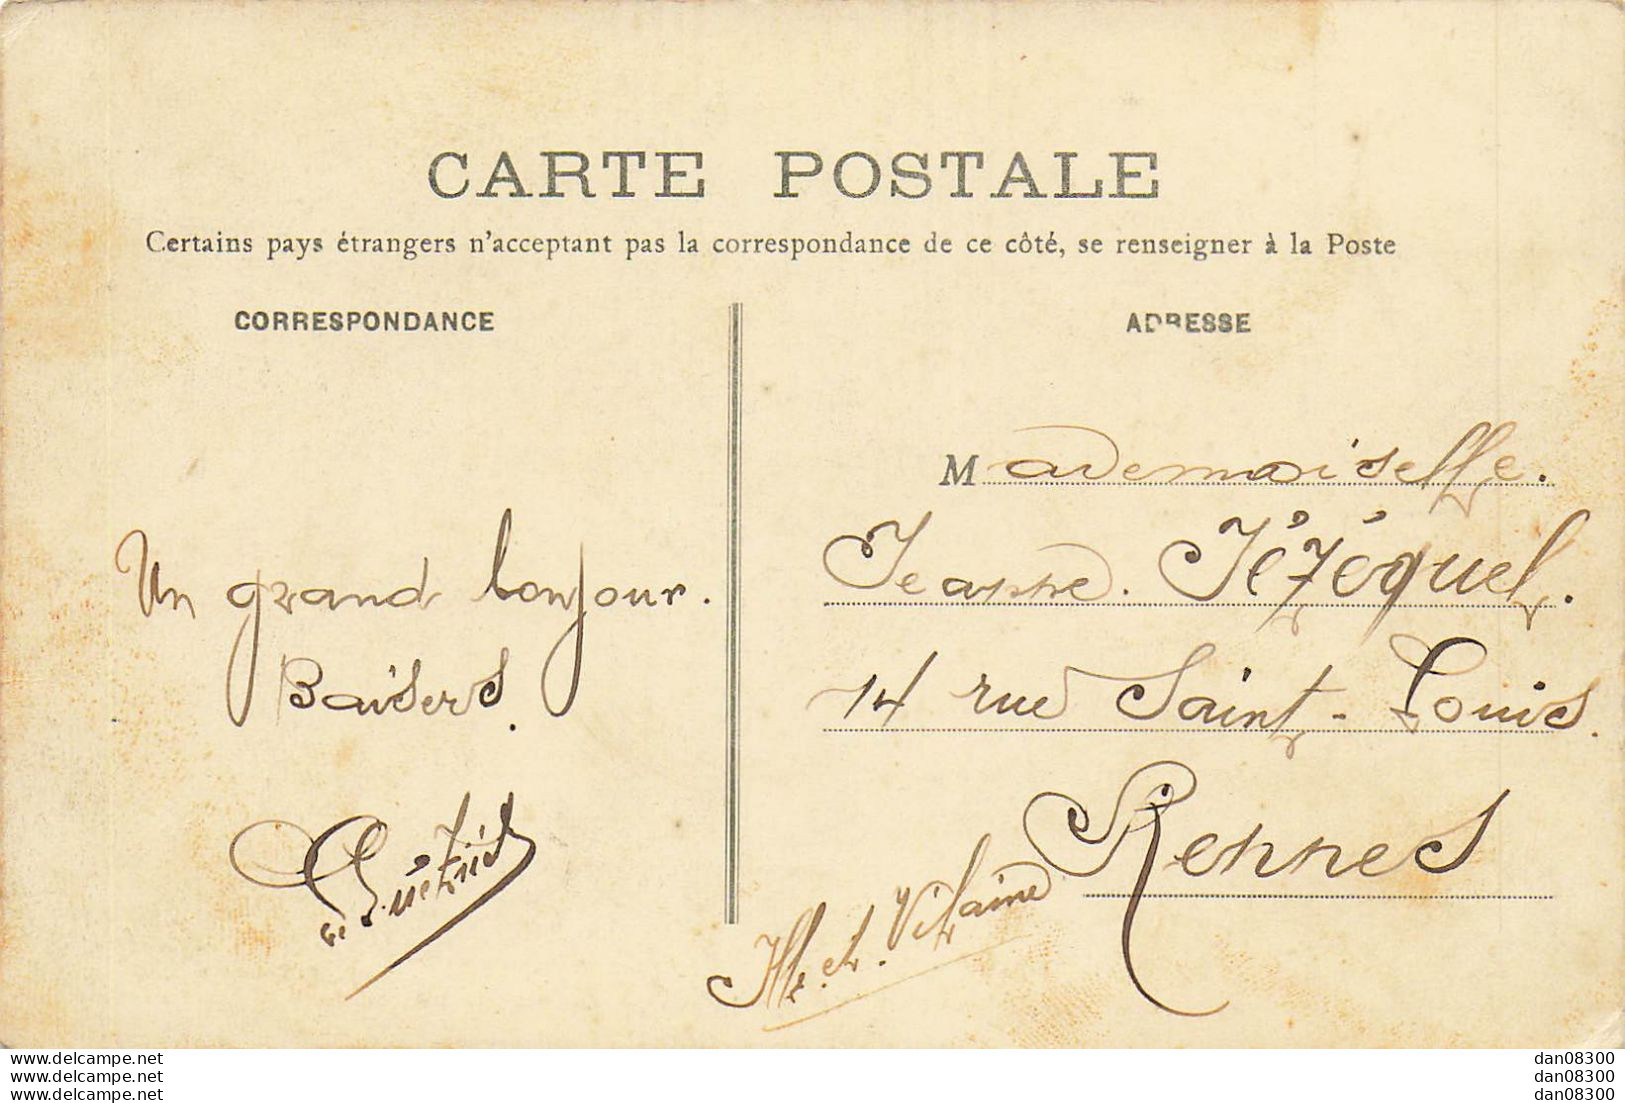 CARTE POSTALE
Certains pays étrangers n'acceptant pas la correspondance de ce côté, se renseigner à la Poste
CORRESPONDANCE
ADRESSE
Un grand bonjour.
Baisers.
Mademoiselle.
Jeanne. Jézéquel.
14 rue Saint-Louis.
Rennes
Ille. et. Vilaine
www.delcampe.net
www.delcampe.net
www.delcampe.net
dan08300
dan08300
dan08300